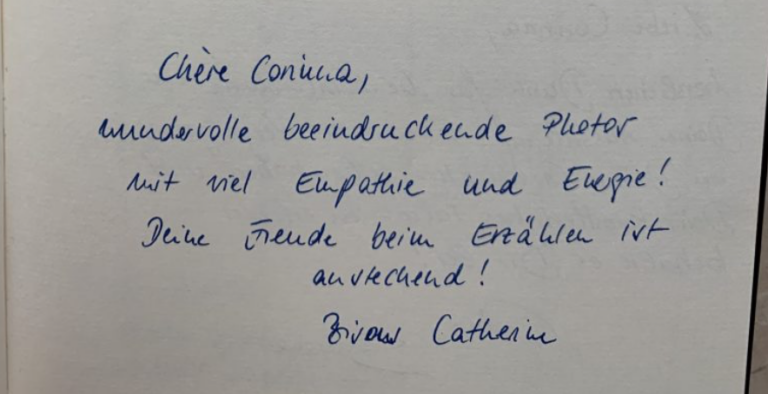 Chère Corinna,
wundervolle beeindruckende Photos
mit viel Empathie und Energie!
Deine Freude beim Erzählen ist
ansteckend!
Bisous Catherine